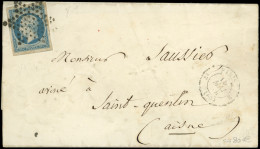 Monsieur Saussier
avoué à
Saint-quentin
(aisne)